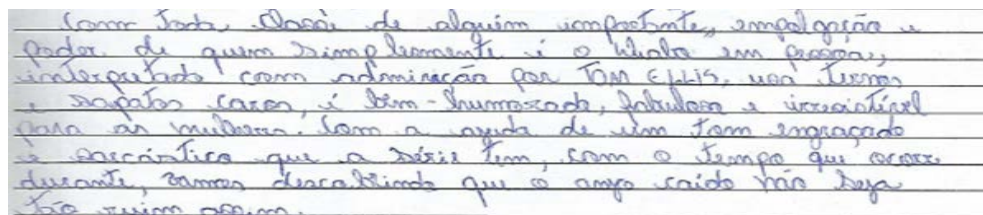 Com toda classe de alguém importante, empolgação e
poder de quem simplesmente é o diabo em pessoa,
interpretado com admiração por TOM ELLIS, usa ternos
e sapatos caros, é bem-humorado, fabuloso e irresistível
para as mulheres. Com a ajuda de um tom engraçado
e sarcástico que a série tem, com o tempo que ocorre
durante, vamos descobrindo que o anjo caído não seja
tão ruim assim.